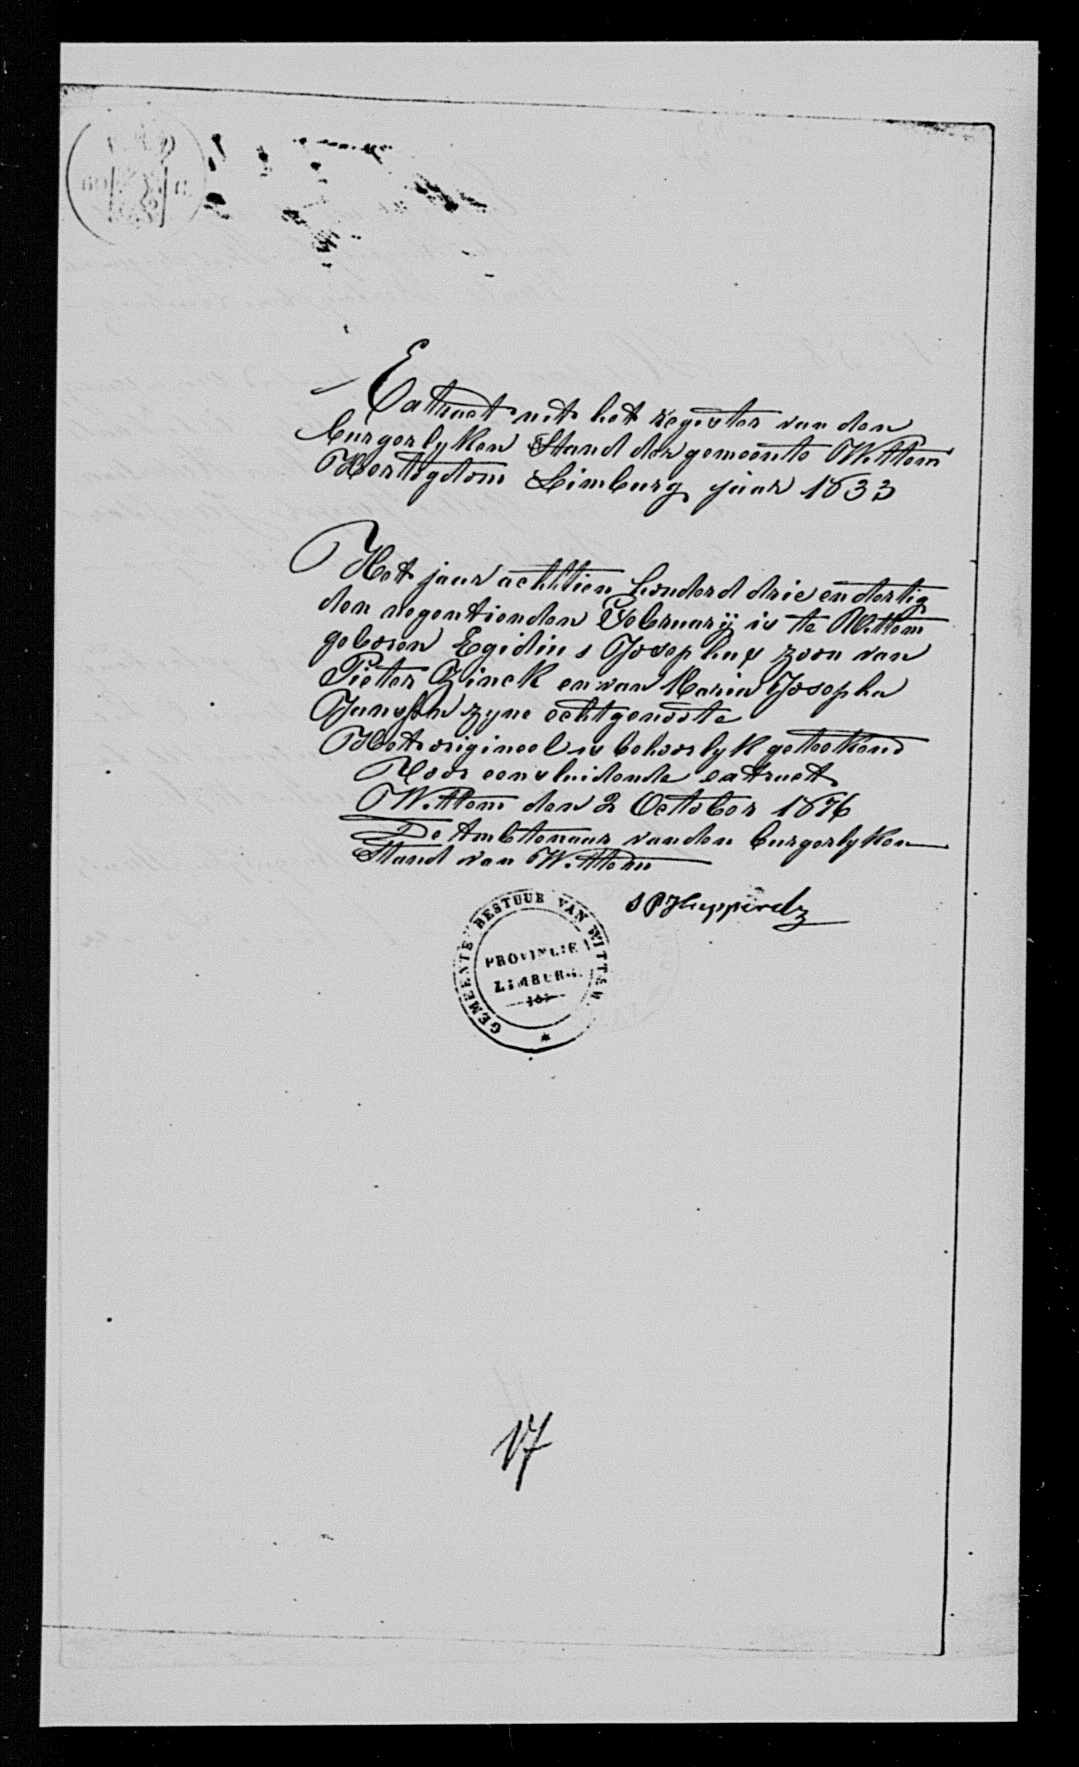 Extract uit het register van den
burgerlyken Stand der gemeente Wittem
Hertogdom Limburg jaar 1833
Het jaar achttien honderd drie en dertig
den negentienden February is te Wittem
geboren Egidius Josephus zoon van
Pieter Zinck en van Maria Josepha
Janssen zyne echtgenoote
Het origineel is behoorlyk geteekend
Voor eensluidende extract
Wittem den 2 October 1876
De Ambtenaar van den burgerlyken
Stand van Wittem
Huppertz
GEMEENTE BESTUUR VAN WITTEM
PROVINCIE
LIMBURG.
17